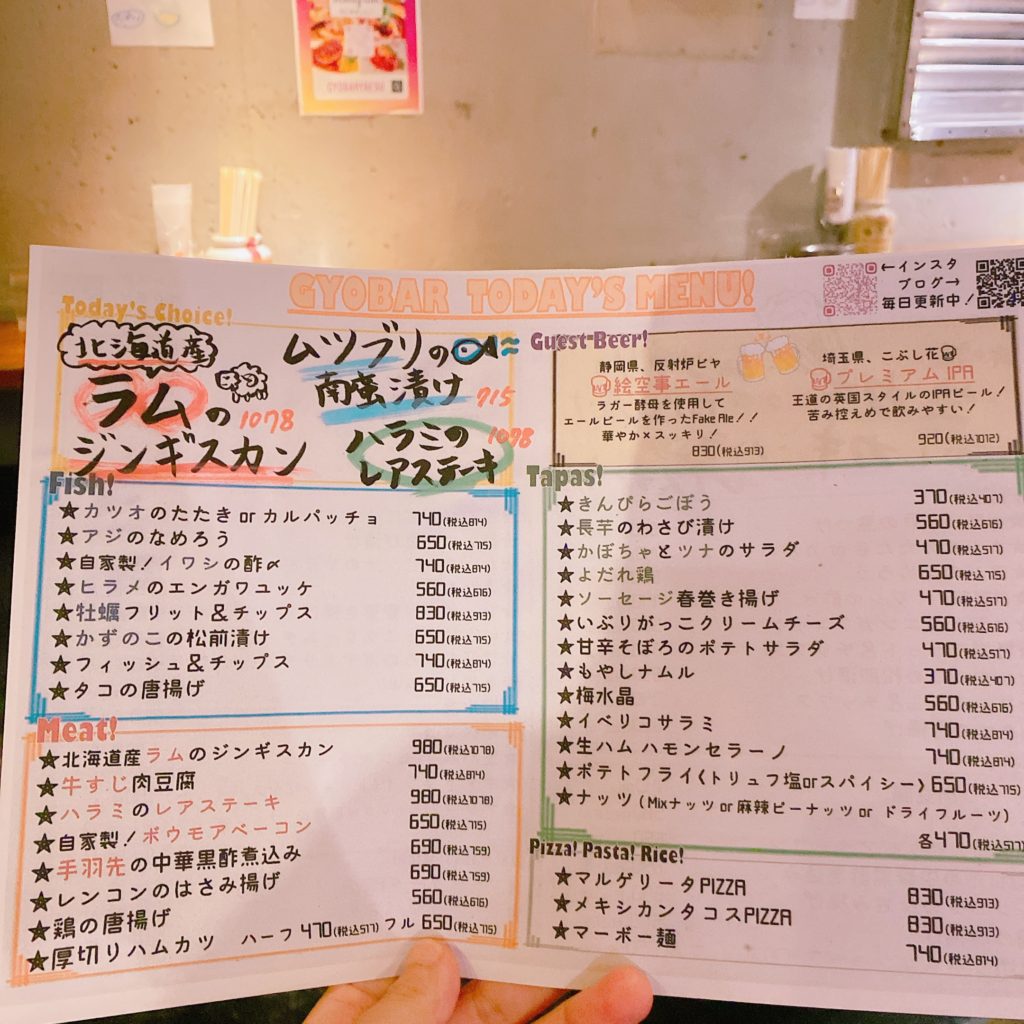 GYOBAR TODAY'S MENU!
←インスタ
ブログ→
毎日更新中！
Today's Choice!
北海道産
ラムの 1078
ジンギスカン
ムツブリの
南蛮漬け 715
ハラミの 1098
レアステーキ
Fish!
★カツオのたたき or カルパッチョ 740(税込814)
★アジのなめろう 650(税込715)
★自家製！イワシの酢〆 740(税込814)
★ヒラメのエンガワユッケ 560(税込616)
★牡蠣フリット＆チップス 830(税込913)
★かずのこの松前漬け 650(税込715)
★フィッシュ＆チップス 740(税込814)
★タコの唐揚げ 650(税込715)
Meat!
★北海道産ラムのジンギスカン 980(税込1078)
★牛すじ肉豆腐 740(税込814)
★ハラミのレアステーキ 980(税込1078)
★自家製！ボウモアベーコン 650(税込715)
★手羽先の中華黒酢煮込み 690(税込759)
★レンコンのはさみ揚げ 690(税込759)
★鶏の唐揚げ 560(税込616)
★厚切りハムカツ ハーフ 470(税込517) フル 650(税込715)
Guest Beer!
静岡県、反射炉ビヤ
絵空事エール
ラガー酵母を使用して
エールビールを作ったFake Ale！！
華やか×スッキリ！
830(税込913)
埼玉県、こぶし花
プレミアム IPA
王道の英国スタイルのIPAビール！
苦み控えめで飲みやすい！
920(税込1012)
Tapas!
★きんぴらごぼう 370(税込407)
★長芋のわさび漬け 560(税込616)
★かぼちゃとツナのサラダ 470(税込517)
★よだれ鶏 650(税込715)
★ソーセージ春巻き揚げ 470(税込517)
★いぶりがっこクリームチーズ 560(税込616)
★甘辛そぼろのポテトサラダ 470(税込517)
★もやしナムル 370(税込407)
★梅水晶 560(税込616)
★イベリコサラミ 740(税込814)
★生ハム ハモンセラーノ 740(税込814)
★ポテトフライ(トリュフ塩orスパイシー) 650(税込715)
★ナッツ(Mixナッツ or 麻辣ピーナッツ or ドライフルーツ)
各470(税込517)
Pizza! Pasta! Rice!
★マルゲリータPIZZA 830(税込913)
★メキシカンタコスPIZZA 830(税込913)
★マーボー麺 740(税込814)